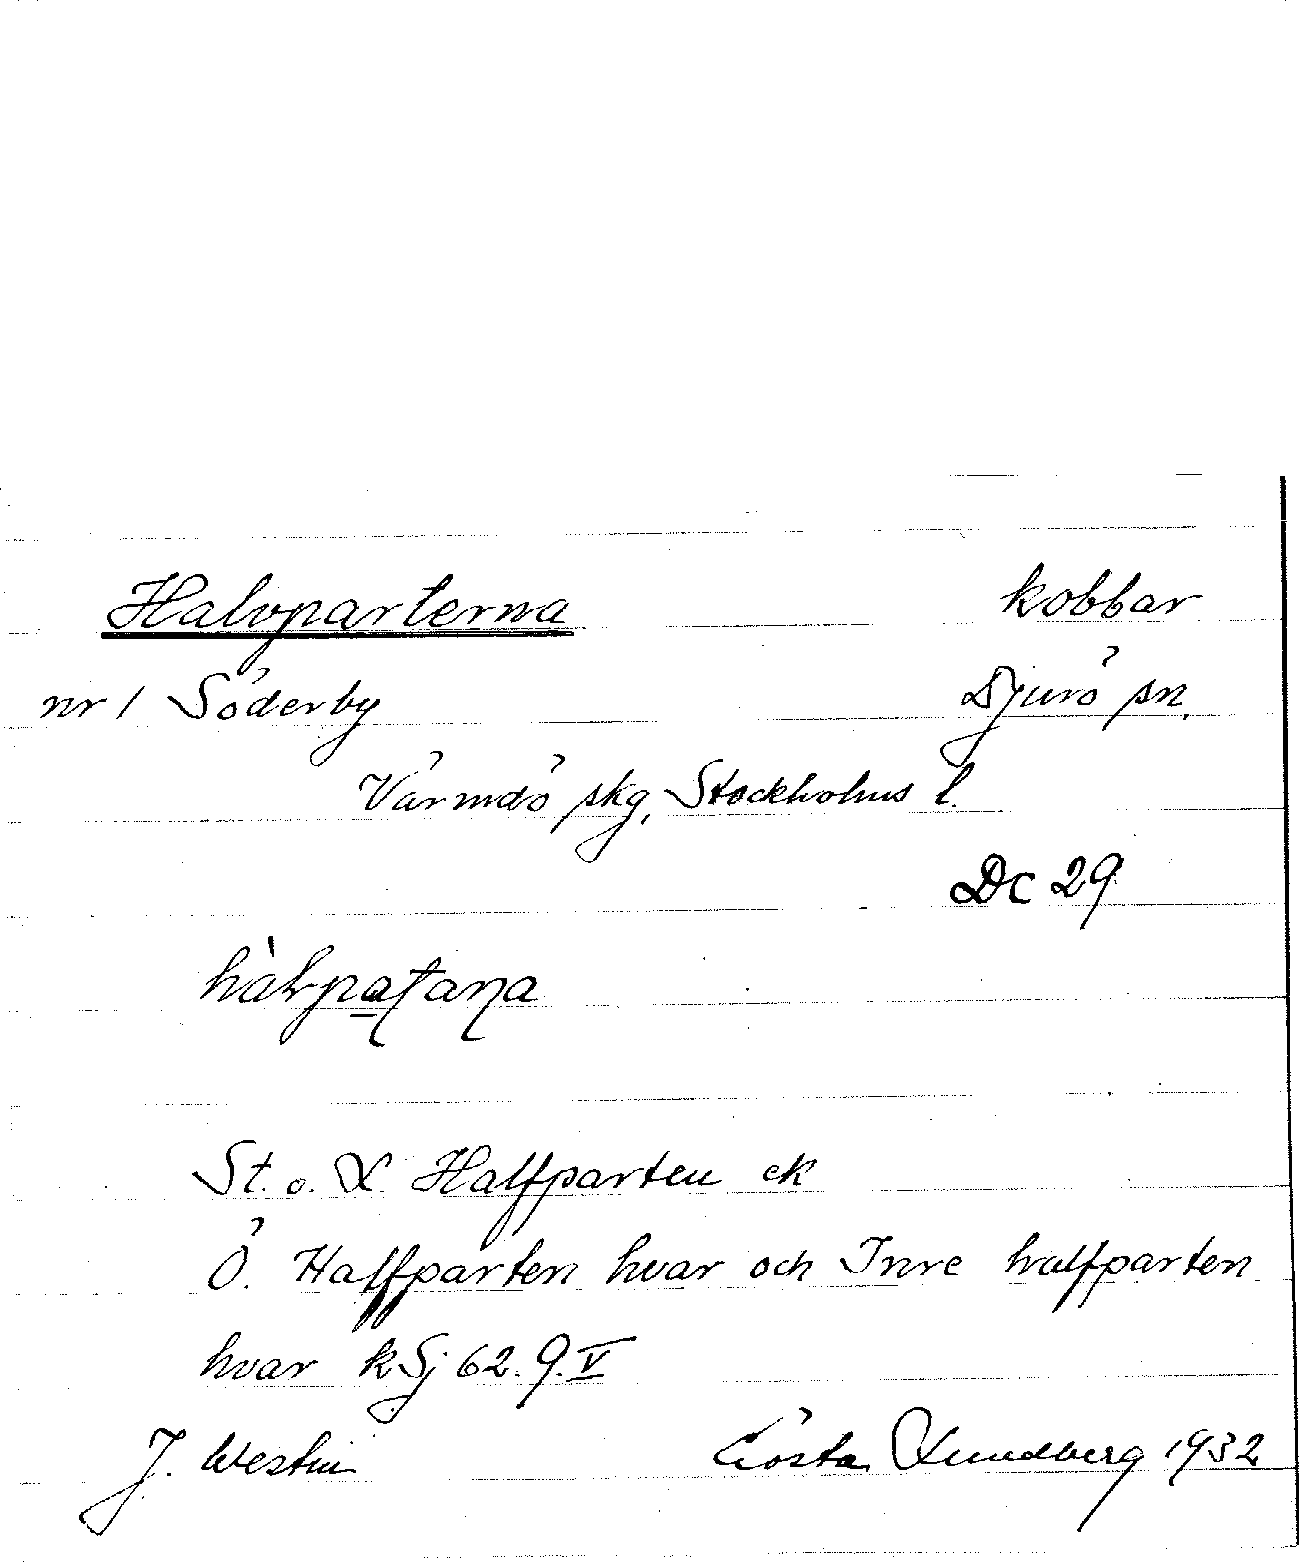 Halvparterna kobbar
nr 1 Söderby Djurö sn.
Värmdö skg, Stockholms l.
Dc 29
hàlvpaʈaɳa
St. o. L. Halfparten ek
Ö. Halfparten hvar och Inre halfparten
hvar k Sj 62.9.V
J. Westin Gösta Lundberg 1932